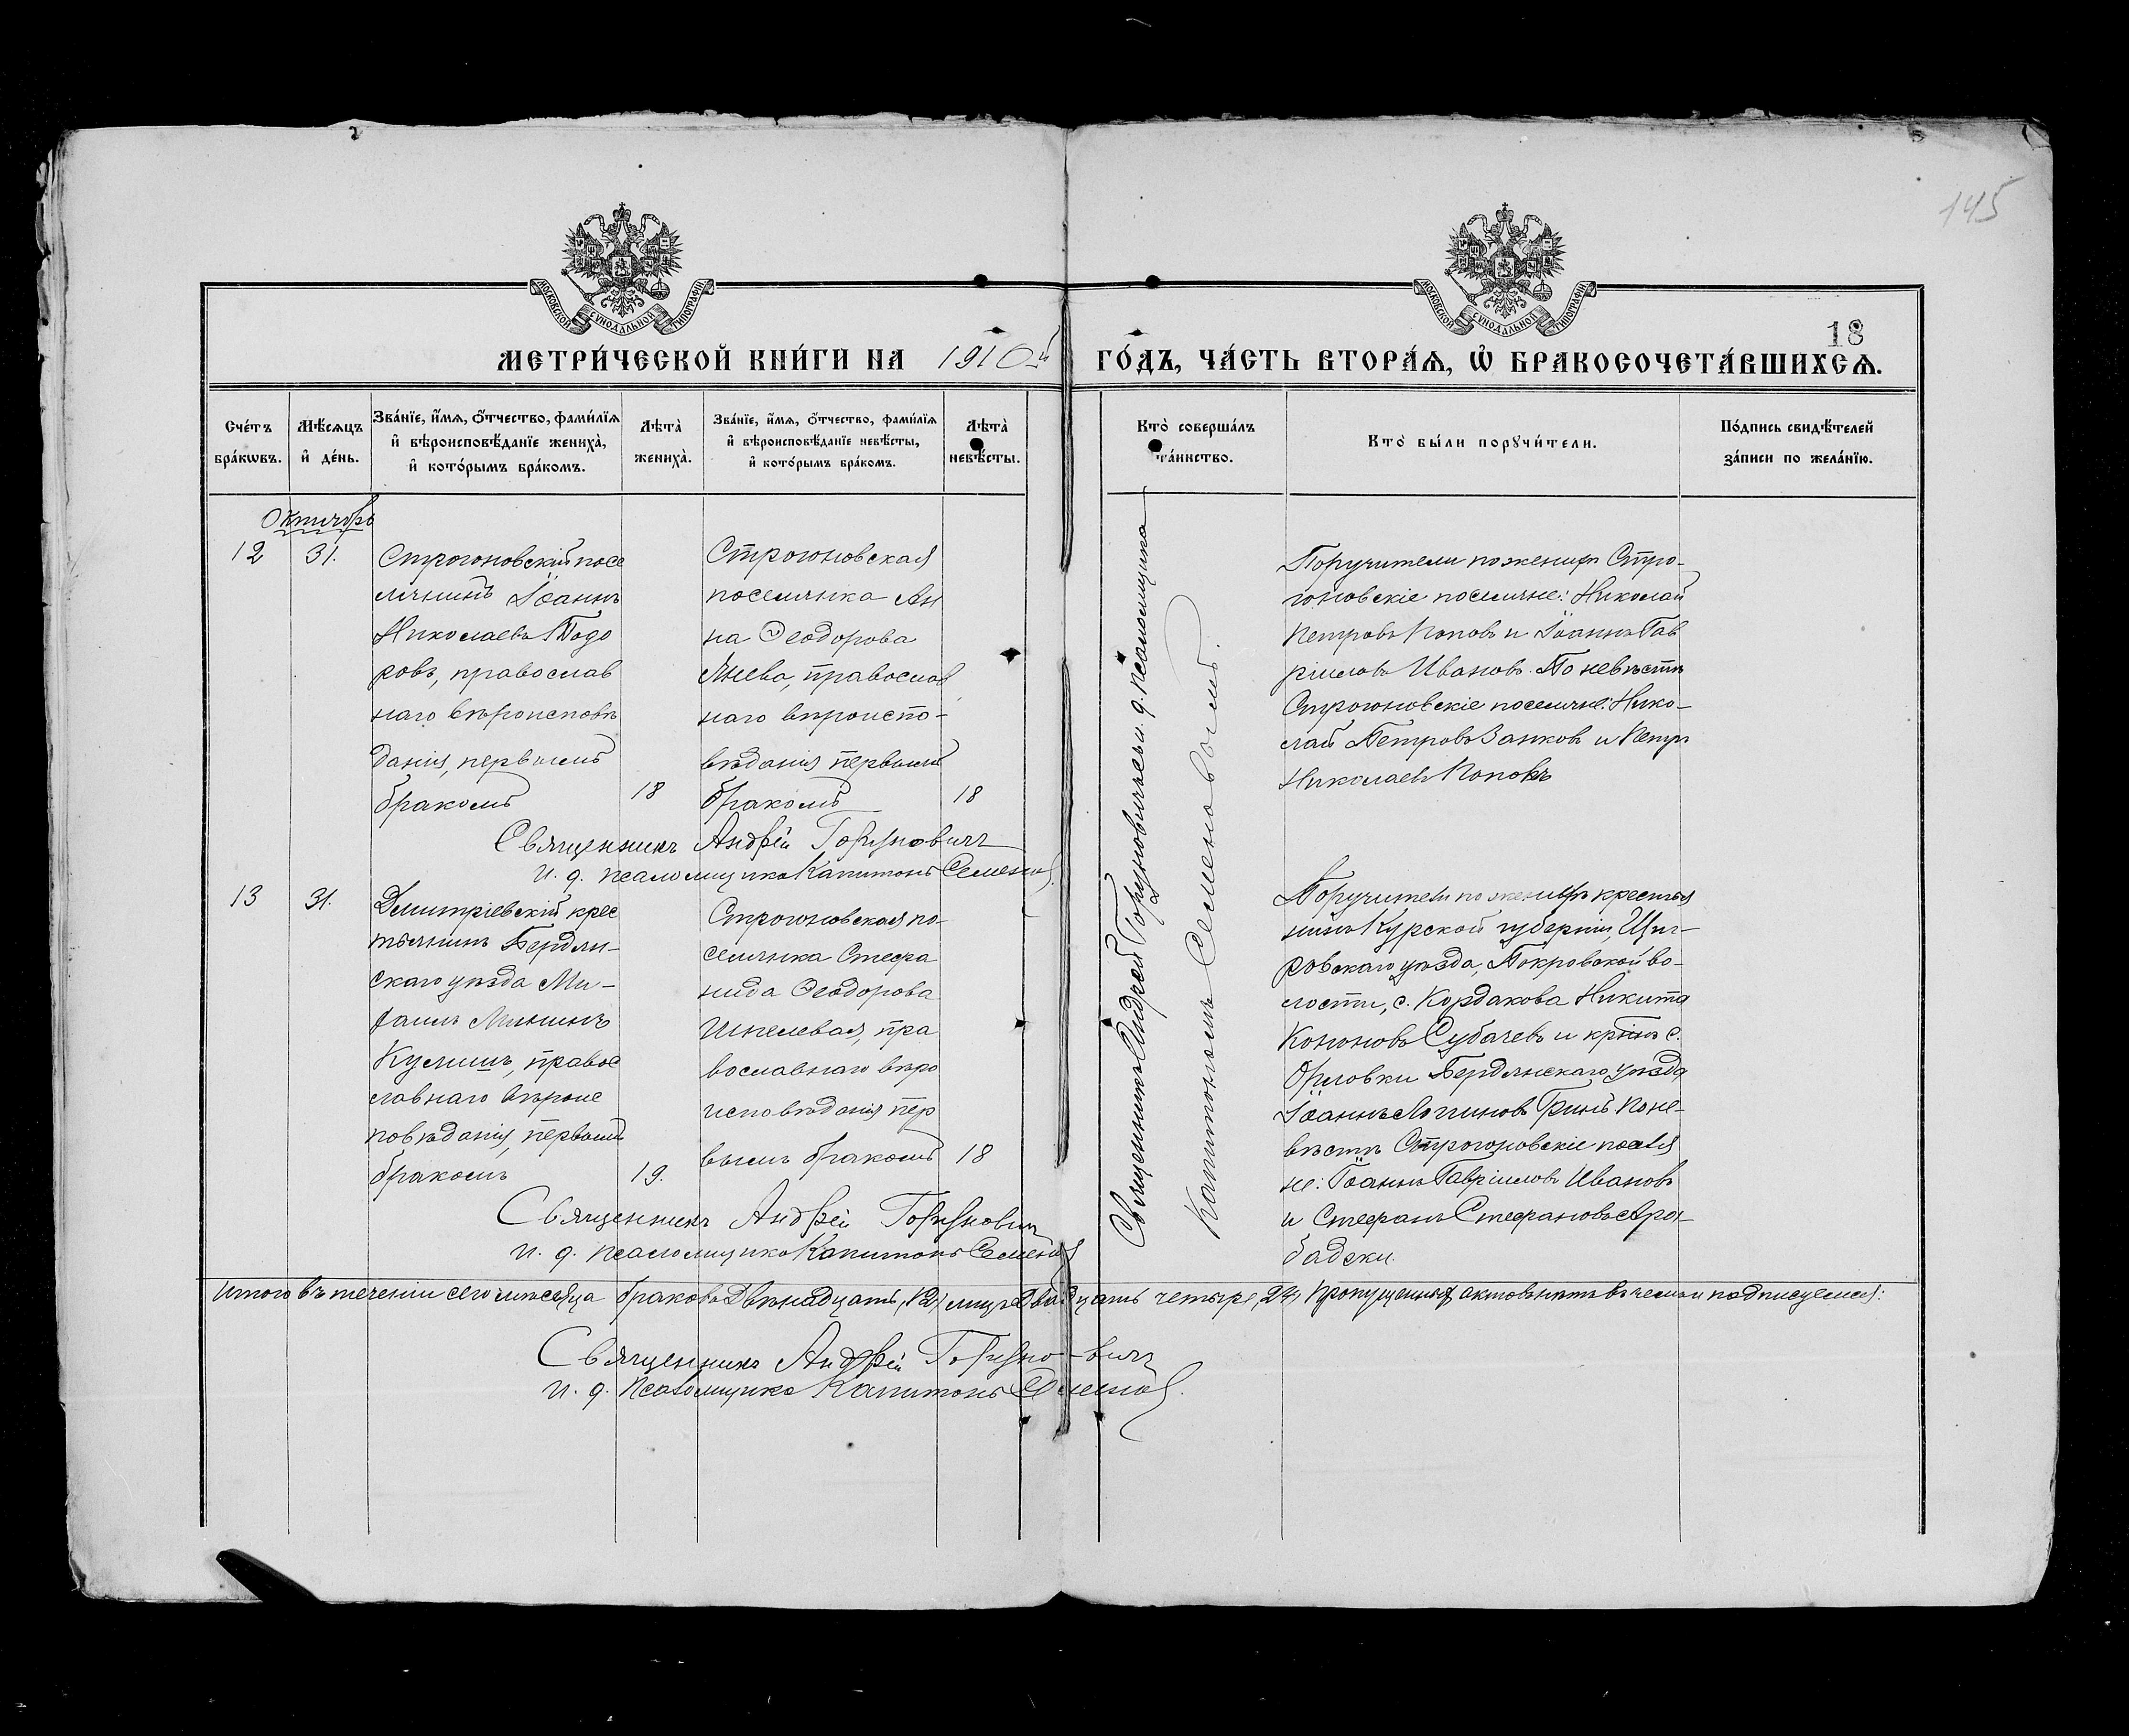 145
МОСКОВСКОЙ СУНОДАЛЬНОЙ ТИПОГРАФІИ
МОСКОВСКОЙ СУНОДАЛЬНОЙ ТИПОГРАФІИ
18
МЕТРИ́ЧЕСКОЙ КНИ́ГИ НА 1910й ГО́ДЪ, ЧА́СТЬ ВТОРА́Ѧ, Ѽ БРАКОСОЧЕТА́ВШИХСѦ.
Сче́тъ
бра́кѡвъ.
Мѣ́сѧцъ
и҆ де́нь.
Зва́нїе, и҆́мѧ, ѻ҆́тчество, фами́лїѧ
и҆ вѣроисповѣ́данїе жениха̀,
и҆ кото́рымъ бра́комъ.
Лѣта̀
жениха̀.
Зва́нїе, и҆́мѧ, ѻ҆́тчество, фами́лїѧ
и҆ вѣроисповѣ́данїе невѣ́сты,
и҆ кото́рымъ бра́комъ.
Лѣта̀
невѣ́сты.
Кто̀ соверша́лъ
та́инство.
Кто̀ бы́ли порꙋчи́тели.
По́дпись свидѣ́телей
за́писи по жела́нїю.
Октябрь
12
31.
Строгоновскій посе
лянинъ Іоаннъ
Николаевъ Тодо
ровъ, православ
наго вѣроисповѣ
данія, первымъ
бракомъ
18
Строгоновская
поселянка Ан
на Ѳеодорова
Янева, православ
наго вѣроиспо-
вѣданія первымъ
бракомъ
18
Священникъ Андрей Горуновичъ и. д. псаломщика
Капитономъ Семеновымъ.
Поручители по женихѣ Стро-
гоновскіе поселяне: Николай
Петровъ Поповъ и Іоаннъ Гав
ріиловъ Ивановъ. По невѣстѣ
Строгоновскіе поселяне: Нико-
лай Петровъ Занковъ и Петръ
Николаевъ Поповъ
Священникъ Андрей Горуновичъ
и. д. псаломщика Капитонъ Семеновъ.
13
31.
Дмитріевскій крес
тьянинъ Бердян-
скаго уѣзда Ми-
хаилъ Мининъ
Кулишъ, правос
лавнаго вѣроис
повѣданія, первымъ
бракомъ
19.
Строгоновская по-
селянка Стефа
нида Ѳеодорова
Шпелевая, пра
вославнаго вѣро
исповѣданія пер
вымъ бракомъ
18
Поручители по женихѣ крестья
нинъ Курской губерніи, Щиг-
ровскаго уѣзда, Покровской во-
лости, с. Кордакова Никита
Кононовъ Субачевъ и кр-нъ с.
Орловки Бердянскаго уѣзда
Іоаннъ Логиновъ Гринь. По не-
вѣстѣ Строгоновскіе поселя
не: Іоаннъ Гавріиловъ Ивановъ
и Стефанъ Стефановъ Ара-
баджи.
Священникъ Андрей Горуновичъ
и. д. псаломщика Капитонъ Семеновъ
Итого въ теченіи сего мѣсяца браковъ Двѣнадцать, 12, лицъ Двадцать четыре, 24, Пропущенныхъ актовъ нѣтъ въ чемъ и подписуемся:
Священникъ Андрей Горуновичъ
и. д. Псаломщика Капитонъ Семеновъ.